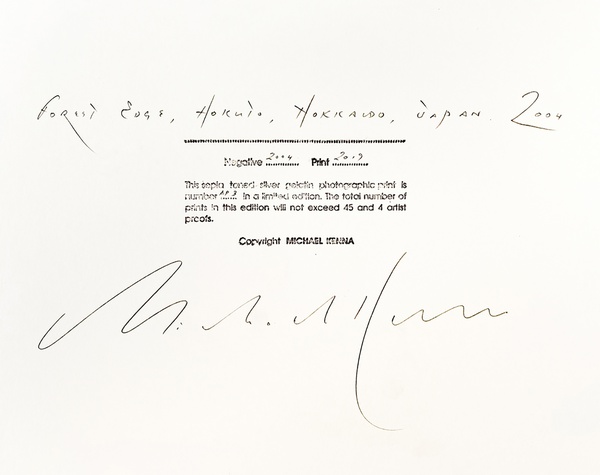 FOREST EDGE, HOKUTO, HOKKAIDO, JAPAN. 2004
Negative 2004 Print 2019
This sepia toned silver gelatin photographic print is
number in a limited edition. The total number of
prints in this edition will not exceed 45 and 4 artist
proofs.
Copyright MICHAEL KENNA
Michael Kenna